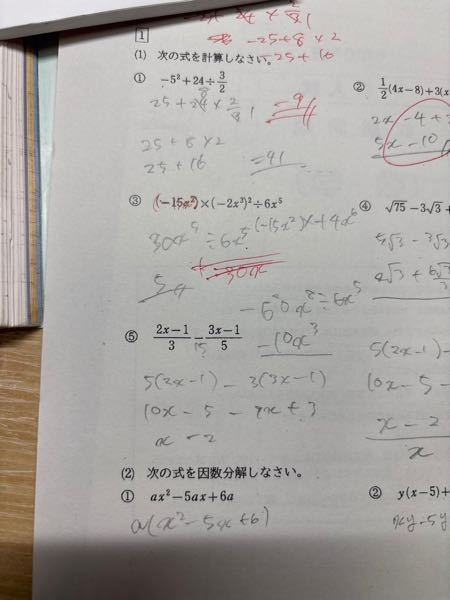 -25+8×2
-25+16
1
(1) 次の式を計算しなさい。
① -5²+24÷3/2
25+24×2/3
-9
25+8×2
25+16
=41
② 1/2(4x-8)+3(x
2x-4+3
5x-10
③ (-15x²)×(-2x³)²÷6x⁵
30x⁵÷6x⁵
(-15x²)×+4x⁶
5x
+30x
-60x⁸÷6x⁵
-10x³
④ √75-3√3+
5√3-3√3
2√3+6√3/3
⑤ (2x-1)/3-(3x-1)/5
15
5(2x-1)-3(3x-1)
10x-5-9x+3
x-2
5(2x-1)-
10x-5-
x-2
x
(2) 次の式を因数分解しなさい。
① ax²-5ax+6a
a(x²-5x+6)
② y(x-5)+
xy-5y